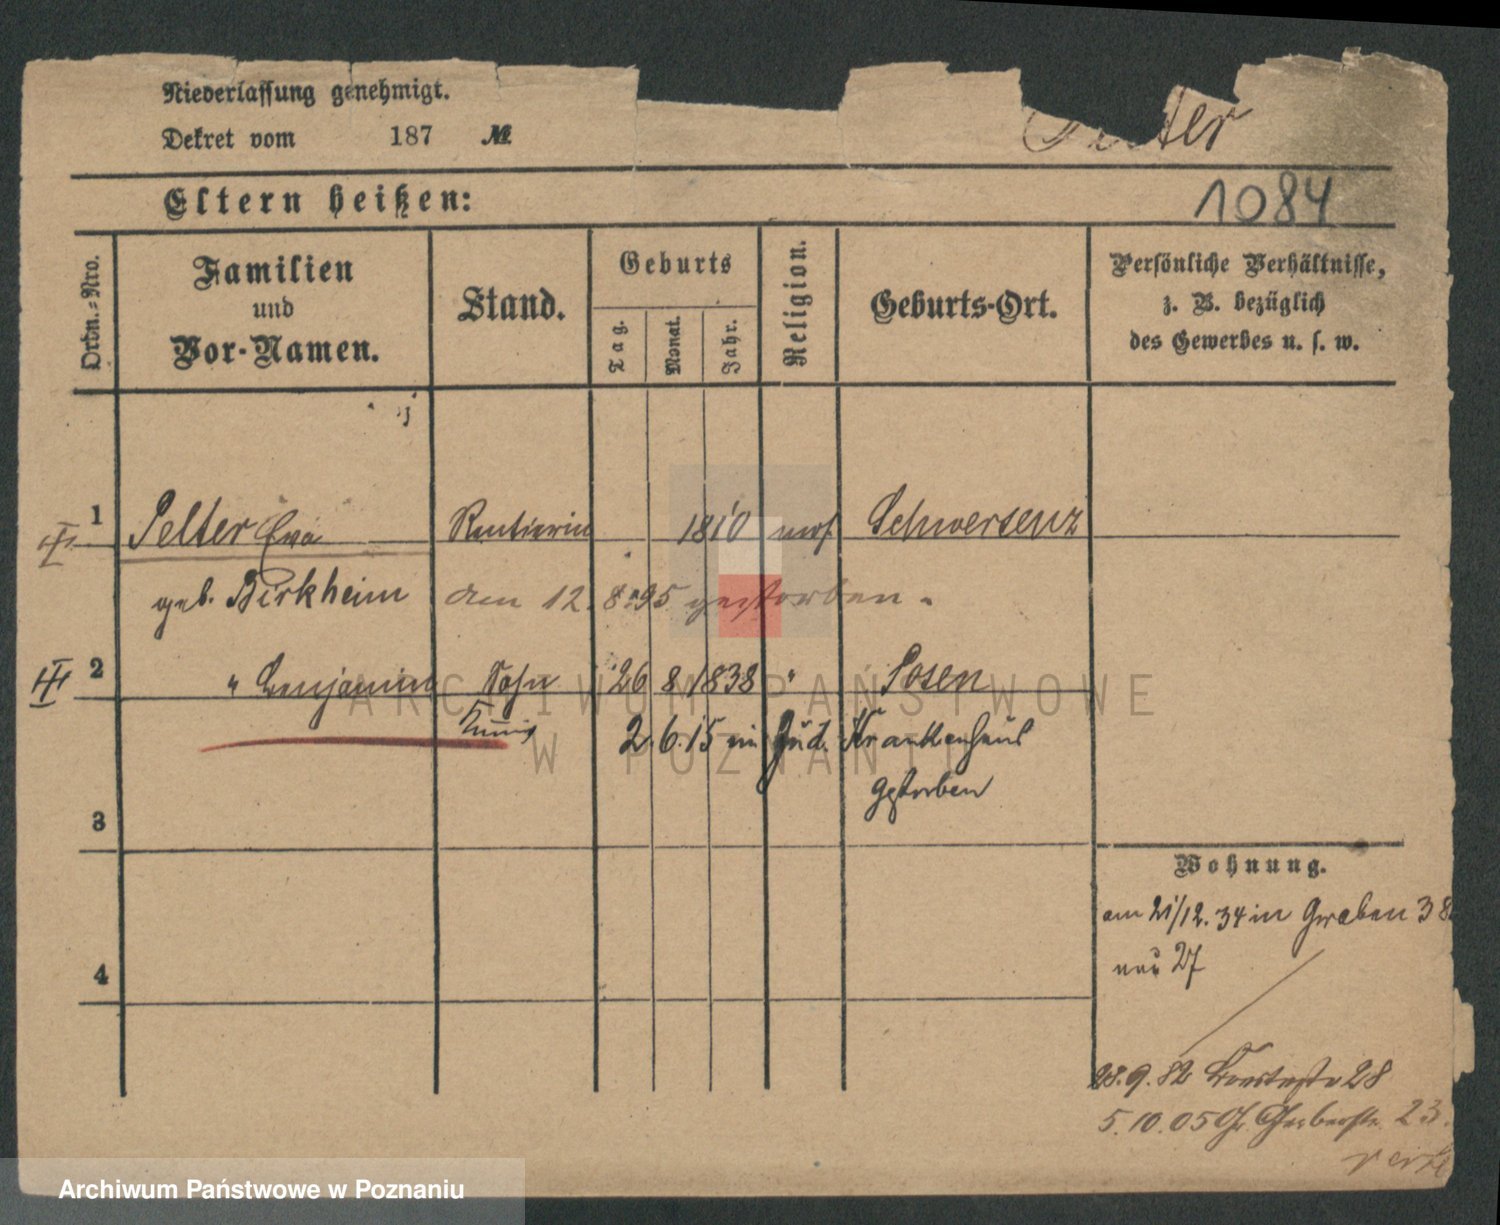 Niederlassung genehmigt.
Dekret vom 187 №
Pelter
1084
Eltern heißen:
Ordn.-Nro.
Familien
und
Vor-Namen.
Stand.
Geburts
Tag.
Monat.
Jahr.
Religion.
Geburts-Ort.
Persönliche Verhältnisse,
z. B. bezüglich
des Gewerbes u. s. w.
1 Pelter Eva Rentierin 1810 mos. Schwersenz
geb. Birkheim den 12. 8. 95 gestorben.
2 " Benjamin Sohn 26 8 1838 " Posen
2. 6. 15 im Jüd. Krankenhaus
gestorben
3
4
Wohnung.
am 21/12. 34 in Graben 38
neu 27
28. 9. 82 28
5. 10. 05 Gr. Gerberstr. 23.
ARCHIWUM PAŃSTWOWE
W POZNANIU
Archiwum Państwowe w Poznaniu